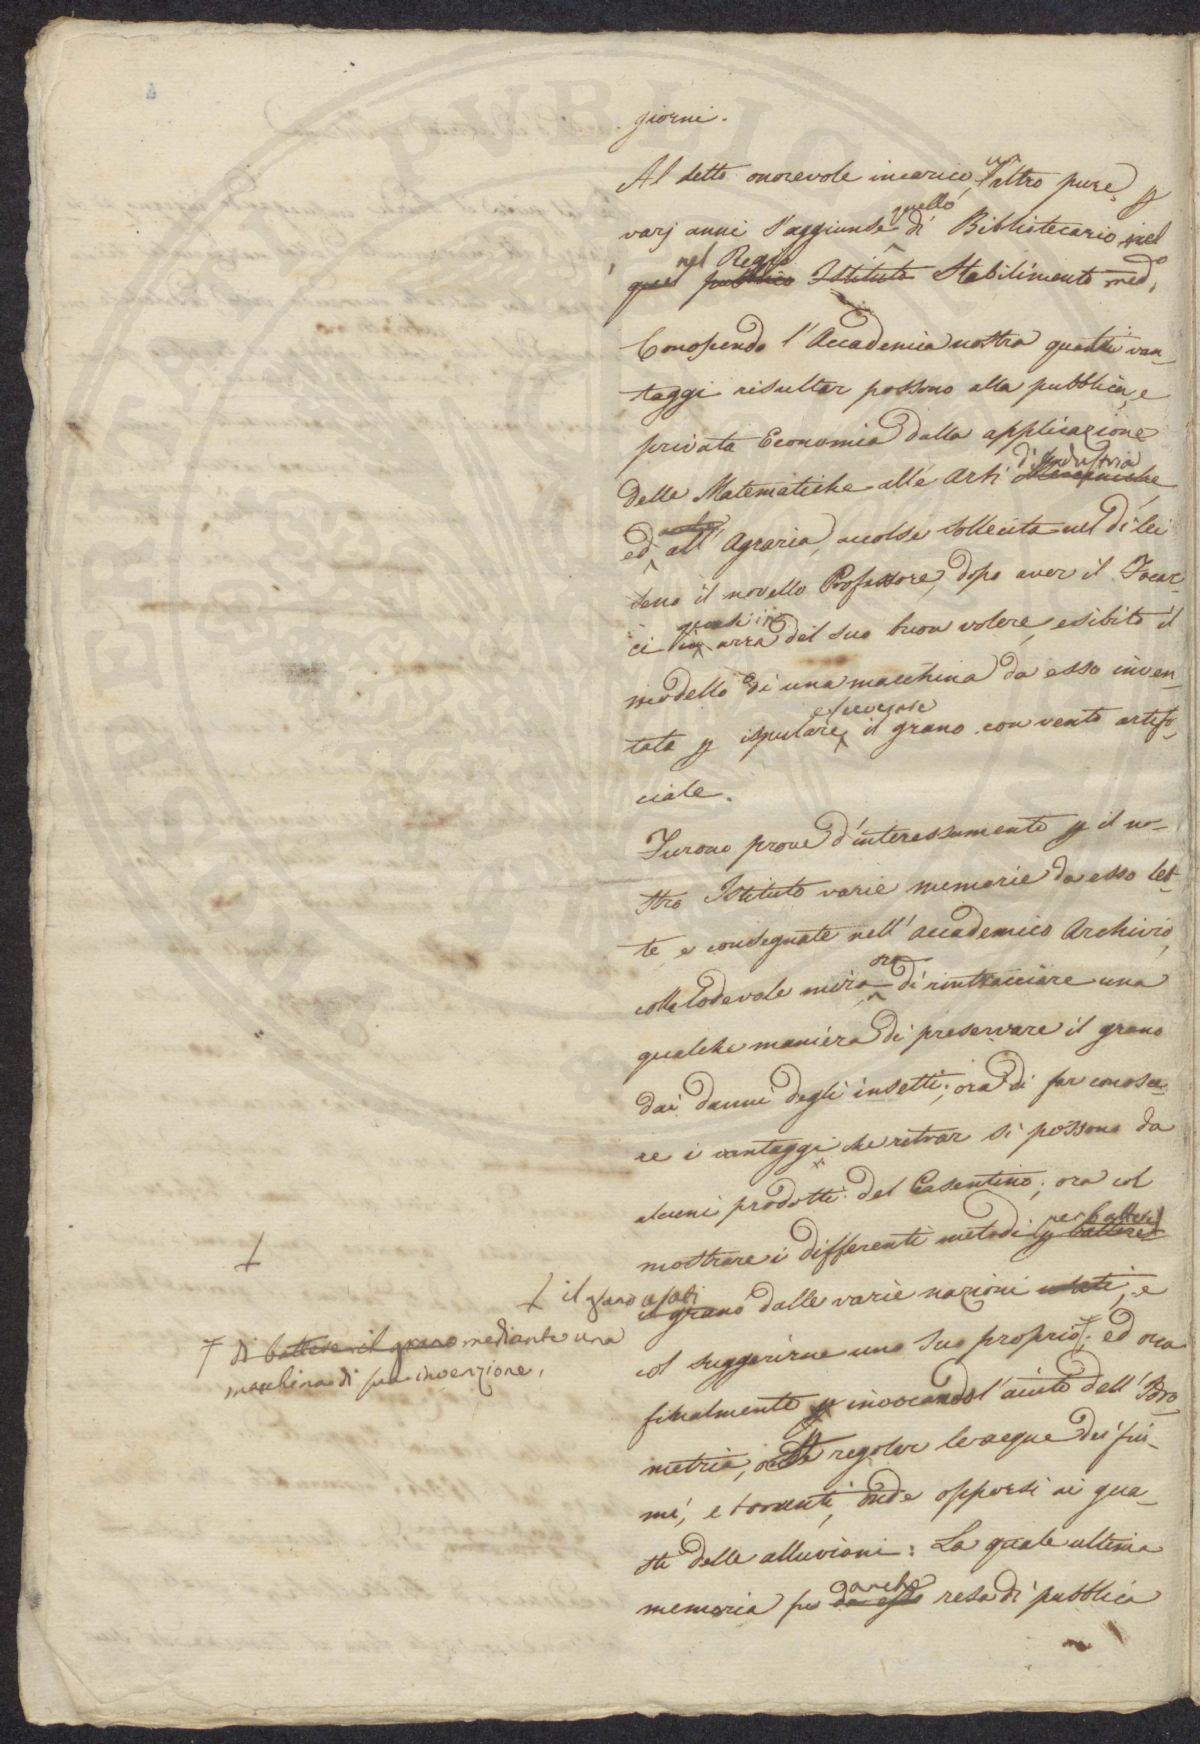 giorni.
Al detto onorevole incarico, un altro pure p
varj anni s'aggiunse quello di Bibliotecario nel
quel pubblico nel Regio Istituto Stabilimento medo.
Conoscendo l'Accademia nostra quanti van-
taggi risultar possono alla pubblica, e
privata Economia dalla applicazione
delle Matematiche alle Arti Meccaniche d'Industria
ed anche all'Agraria, accolse sollecita nel di lei
seno il novello Professore, dopo aver il
ci in quasi in arra del suo buon volere, esibito il
modello di una macchina da esso inven-
tata p ispulare, e scevrare il grano con vento artifi-
ciale.
Furono prove d'interessamento p il no-
stro Istituto varie memorie da esso let-
te, e consegnate nell'accademico Archivio,
colla lodevole mira ora di rintracciare una
qualche maniera di preservare il grano
dai danni degli insetti; ora di far conosce-
re i vantaggi che retrar si possono da
alcuni prodotti del Casentino; ora col
mostrare i differenti metodi p battere per battere
il grano dalle varie nazioni usati, e
† il grano usati
col suggerirne uno suo proprio †; ed ora
† di battere il grano mediante una
macchina di sua invenzione.
finalmente p invocando l'aiuto dell'Idro-
metria, regolar le acque dei fiu-
mi, e torrenti, onde opporsi ai gua-
sti delle alluvioni: La quale ultima
memoria fu da esso anche resa di pubblica